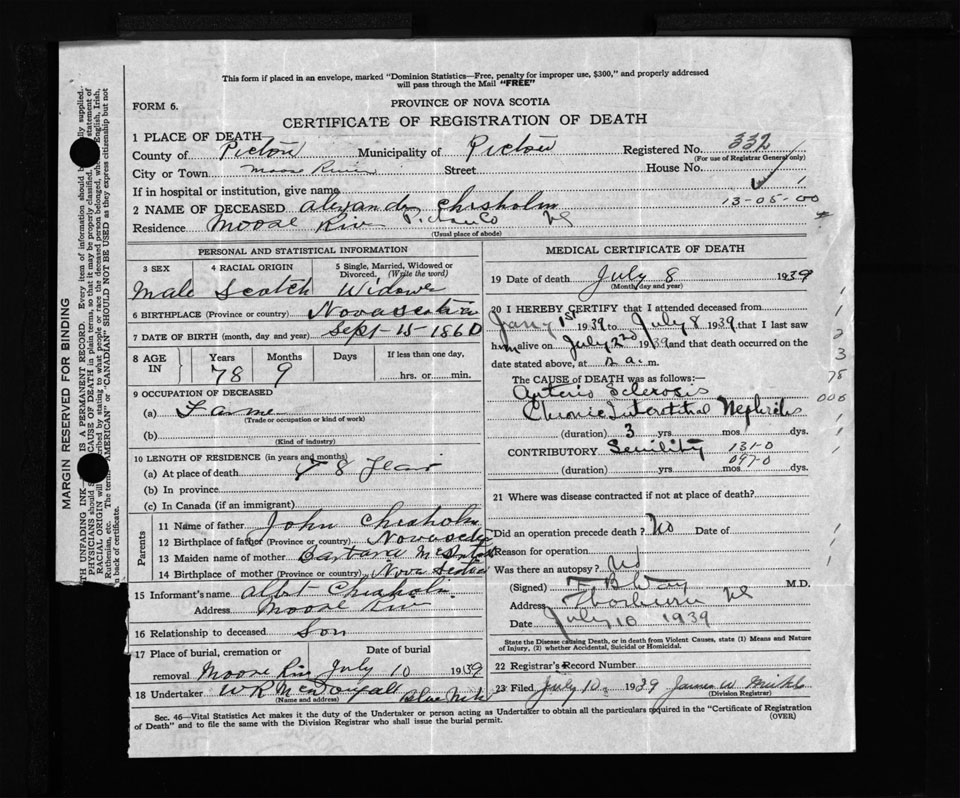 This form if placed in an envelope, marked "Dominion Statistics—Free, penalty for improper use, $300," and properly addressed
will pass through the Mail "FREE"
FORM 6.
PROVINCE OF NOVA SCOTIA
CERTIFICATE OF REGISTRATION OF DEATH
1 PLACE OF DEATH
County of Pictou Municipality of Pictou Registered No. 332
(For use of Registrar General only)
City or Town Moose River Street House No.
If in hospital or institution, give name 1
2 NAME OF DECEASED Alexander Chisholm 13-05-00
Residence Moose Riv Pictou Co NS
(Usual place of abode)
PERSONAL AND STATISTICAL INFORMATION
3 SEX 4 RACIAL ORIGIN 5 Single, Married, Widowed or Divorced. (Write the word)
Male Scotch Widower
6 BIRTHPLACE (Province or country) Nova Scotia
7 DATE OF BIRTH (month, day and year) Sept-15-1860
8 AGE IN Years Months Days If less than one day,
78 9 hrs. or min.
9 OCCUPATION OF DECEASED
(a) Farmer
(Trade or occupation or kind of work)
(b)
(Kind of industry)
10 LENGTH OF RESIDENCE (in years and months)
(a) At place of death 78 Years
(b) In province
(c) In Canada (if an immigrant)
Parents
11 Name of father John Chisholm
12 Birthplace of father (Province or country) Nova Scotia
13 Maiden name of mother Barbara
14 Birthplace of mother (Province or country) Nova Scotia
15 Informant's name Albert Chisholm
Address Moose Riv
16 Relationship to deceased Son
17 Place of burial, cremation or removal Date of burial
Moose Riv July 10 1939
18 Undertaker W R McDougall
(Name and address)
MEDICAL CERTIFICATE OF DEATH
19 Date of death July 8 1939
(Month, day and year)
20 I HEREBY CERTIFY that I attended deceased from
Jany 1st 1939 to July 8 1939 that I last saw
him alive on July 2nd 1939 and that death occurred on the
date stated above, at 2 a.m.
The CAUSE of DEATH was as follows:—
Arterio Sclerosis
Chronic Interstitial Nephritis
(duration) 3 yrs. mos. dys.
CONTRIBUTORY Senility 131-0
097-0
(duration) yrs. mos. dys.
21 Where was disease contracted if not at place of death?
Did an operation precede death? No Date of
Reason for operation
Was there an autopsy? No
(Signed) F B Day M.D.
Address Thorburn NS
Date July 10 1939
State the Disease causing Death, or in death from Violent Causes, state (1) Means and Nature
of Injury, (2) whether Accidental, Suicidal or Homicidal.
22 Registrar's Record Number
23 Filed July 10 1939 James W
(Division Registrar)
Sec. 46—Vital Statistics Act makes it the duty of the Undertaker or person acting as Undertaker to obtain all the particulars required in the "Certificate of Registration
of Death" and to file the same with the Division Registrar who shall issue the burial permit. (OVER)
MARGIN RESERVED FOR BINDING
TH UNFADING INK— IS A PERMANENT RECORD. Every item of information should be lly supplied.
PHYSICIANS should CAUSE OF DEATH in plain terms, so that it may be properly classified. statement of
RACIAL ORIGIN will cribed by stating to what people or race the deceased person belonged, wh English, Irish,
Ruthenian, etc. The terms AMERICAN" or "CANADIAN" SHOULD NOT BE USED as they express citizenship but not
n back of certificate.
1
1
2
3
78
000
1
1
1
1